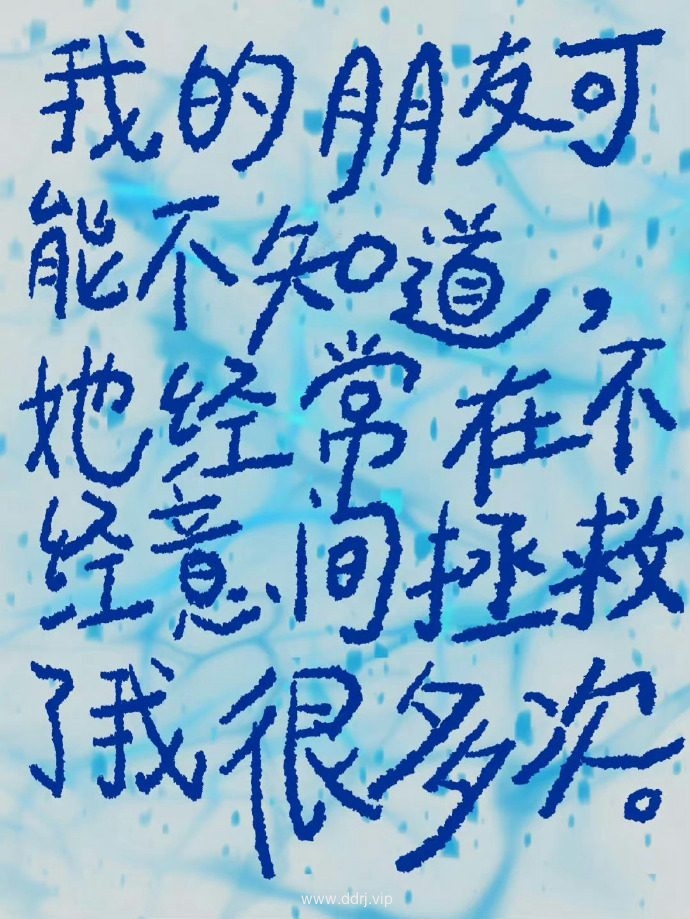 我的朋友可
能不知道，
她经常在不
经意间拯救
了我很多次。
www.ddrj.vip